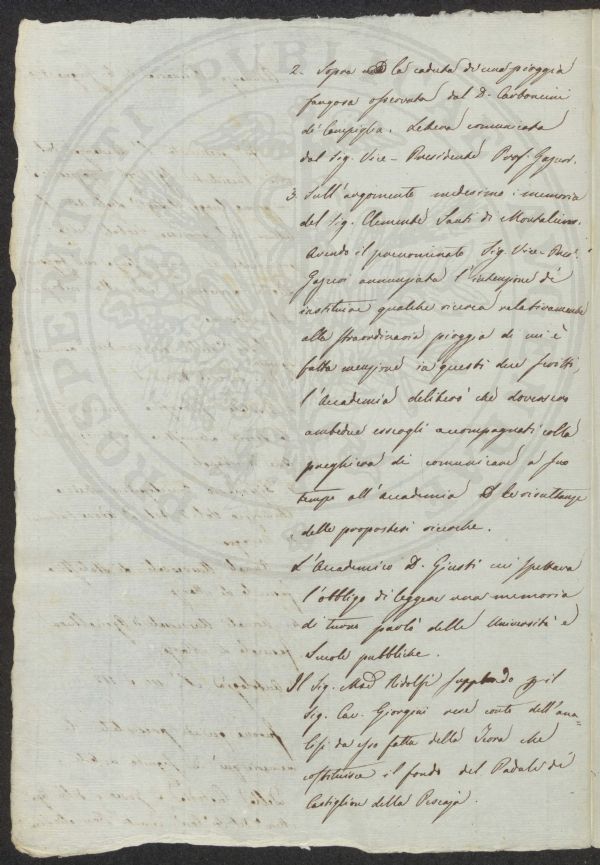 2. Sopra la caduta di una pioggia
fangosa osservata dal D. Carboncini
di Campiglia. Lettera comunicata
dal Sig. Vice-Presidente Prof. Gazzeri.
3. Sull'argomento medesimo: memoria
del Sig. Clemente Santi di Montalcino.
Avendo il prenominato Sig. Vice-Pres.
Gazzeri annunziata l'intenzione di
instituire qualche ricerca relativamente
alla straordinaria pioggia di cui è
fatta menzione in questi due scritti,
l'Accademia deliberò che dovessero
ambedue essergli accompagnati colla
preghiera di comunicare a suo
tempo all'Accademia le risultanze
delle propostesi ricerche.
L'Accademico D. Giusti cui spettava
l'obbligo di leggere una memoria
di turno parlò delle Università e
Scuole pubbliche.
Il Sig. Ridolfi supplendo pel
Sig. Cav. Giorgini rese conto dell'ana-
lisi da esso fatta della Torba che
costituisce il fondo del Padule di
Castiglione della Pescaja.
PROSPERITATI PVBLICAE